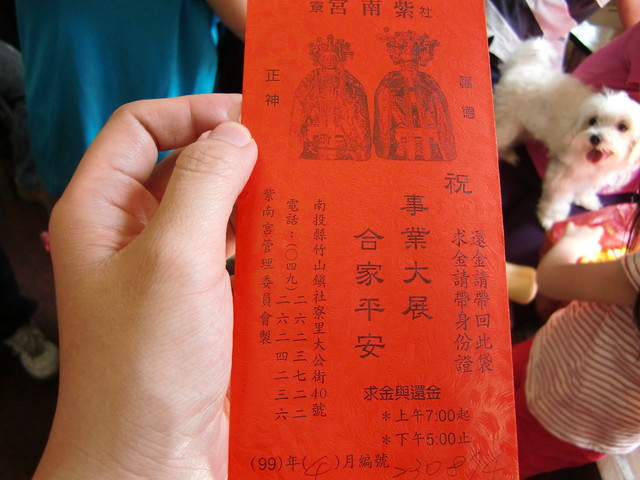 社紫南宮寮
福德
正神
祝
事業大展
合家平安
還金請帶回此袋
求金請帶身份證
南投縣竹山鎮社寮里大公街40號
電話:(〇四九)二六二三七二二
二六二四二三六
紫南宮管理委員會製
求金與還金
*上午7:00起
*下午5:00止
(99)年( )月編號